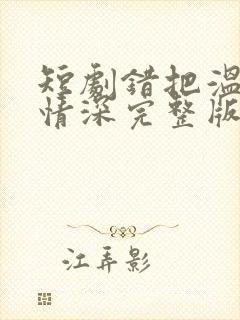 短劇错把温
情深完整版
江弄影